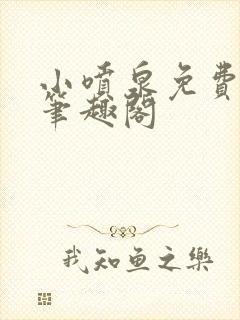 小喷泉免费
笔趣阁
我知鱼之樂